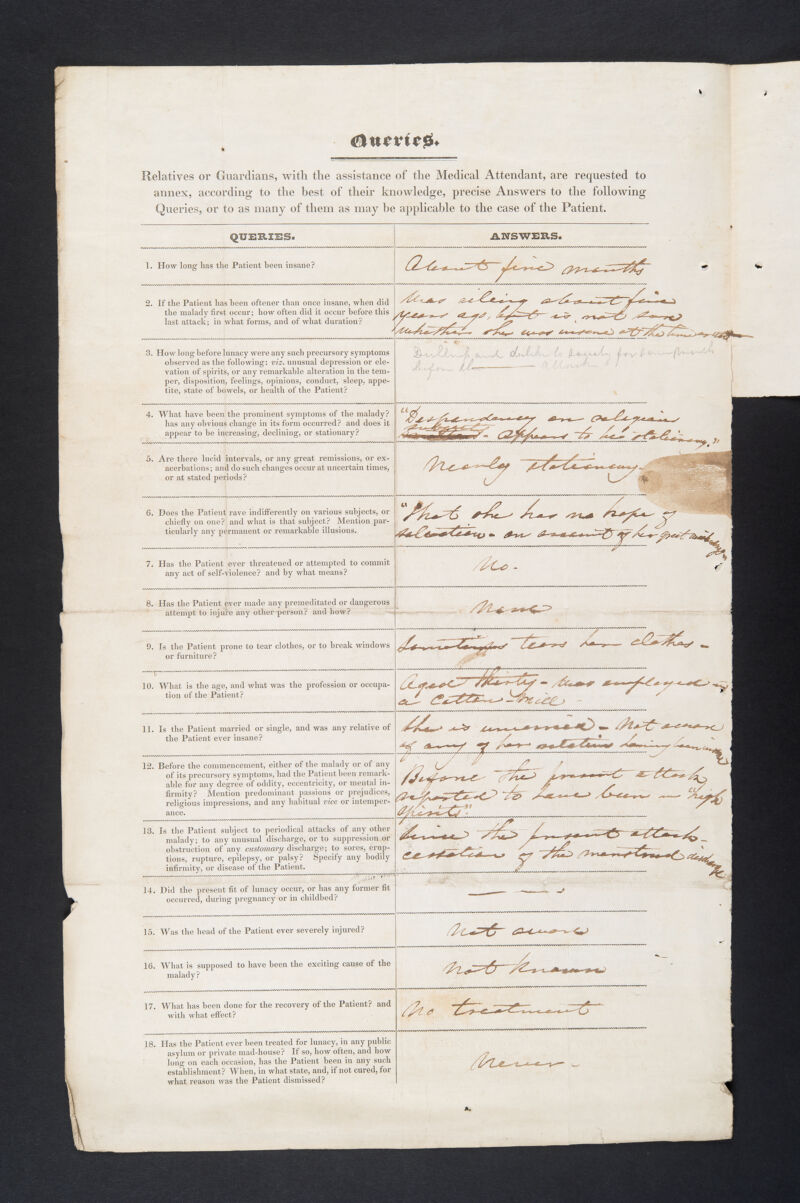 Queries.
Relatives or Guardians, with the assistance of the Medical Attendant, are requested to
annex, according to the best of their knowledge, precise Answers to the following
Queries, or to as many of them as may be applicable to the case of the Patient.
QUERIES.
ANSWERS.
1. How long has the Patient been insane?
About five months
2. If the Patient has been oftener than once insane, when did
the malady first occur; how often did it occur before this
last attack; in what forms, and of what duration?
Was ailing about five
years ago, but is not sure
whether she was insane at the time or not
3. How long before lunacy were any such precursory symptoms
observed as the following: viz. unusual depression or ele-
vation of spirits, or any remarkable alteration in the tem-
per, disposition, feelings, opinions, conduct, sleep, appe-
tite, state of bowels, or health of the Patient?
and for some
before
4. What have been the prominent symptoms of the malady?
has any obvious change in its form occurred? and does it
appear to be increasing, declining, or stationary?
"Despondency on religious
subjects - appears to be stationary."
5. Are there lucid intervals, or any great remissions, or ex-
acerbations; and do such changes occur at uncertain times,
or at stated periods?
Nearly stationary.
6. Does the Patient rave indifferently on various subjects, or
chiefly on one? and what is that subject? Mention par-
ticularly any permanent or remarkable illusions.
"That she has no hope of
salvation - on account of her great
7. Has the Patient ever threatened or attempted to commit
any act of self-violence? and by what means?
No.
8. Has the Patient ever made any premeditated or dangerous
attempt to injure any other person? and how?
None
9. Is the Patient prone to tear clothes, or to break windows
or furniture?
Sometimes tears her clothes -
10. What is the age, and what was the profession or occupa-
tion of the Patient?
Aged thirty - was employed in
a Cotton Mill
11. Is the Patient married or single, and was any relative of
the Patient ever insane?
She is unmarried - Not aware
of any of her relatives having been insane
12. Before the commencement, either of the malady or of any
of its precursory symptoms, had the Patient been remark-
able for any degree of oddity, eccentricity, or mental in-
firmity? Mention predominant passions or prejudices,
religious impressions, and any habitual vice or intemper-
ance.
Before the present attack
reported to have been in "high
spirits".
13. Is the Patient subject to periodical attacks of any other
malady; to any unusual discharge, or to suppression or
obstruction of any customary discharge; to sores, erup-
tions, rupture, epilepsy, or palsy? Specify any bodily
infirmity, or disease of the Patient.
Since the present attack -
cessation of the menstrual discharge
14. Did the present fit of lunacy occur, or has any former fit
occurred, during pregnancy or in childbed?
15. Was the head of the Patient ever severely injured?
Not aware
16. What is supposed to have been the exciting cause of the
malady?
Not known
17. What has been done for the recovery of the Patient? and
with what effect?
No treatment
18. Has the Patient ever been treated for lunacy, in any public
asylum or private mad-house? If so, how often, and how
long on each occasion, has the Patient been in any such
establishment? When, in what state, and, if not cured, for
what reason was the Patient dismissed?
Never -